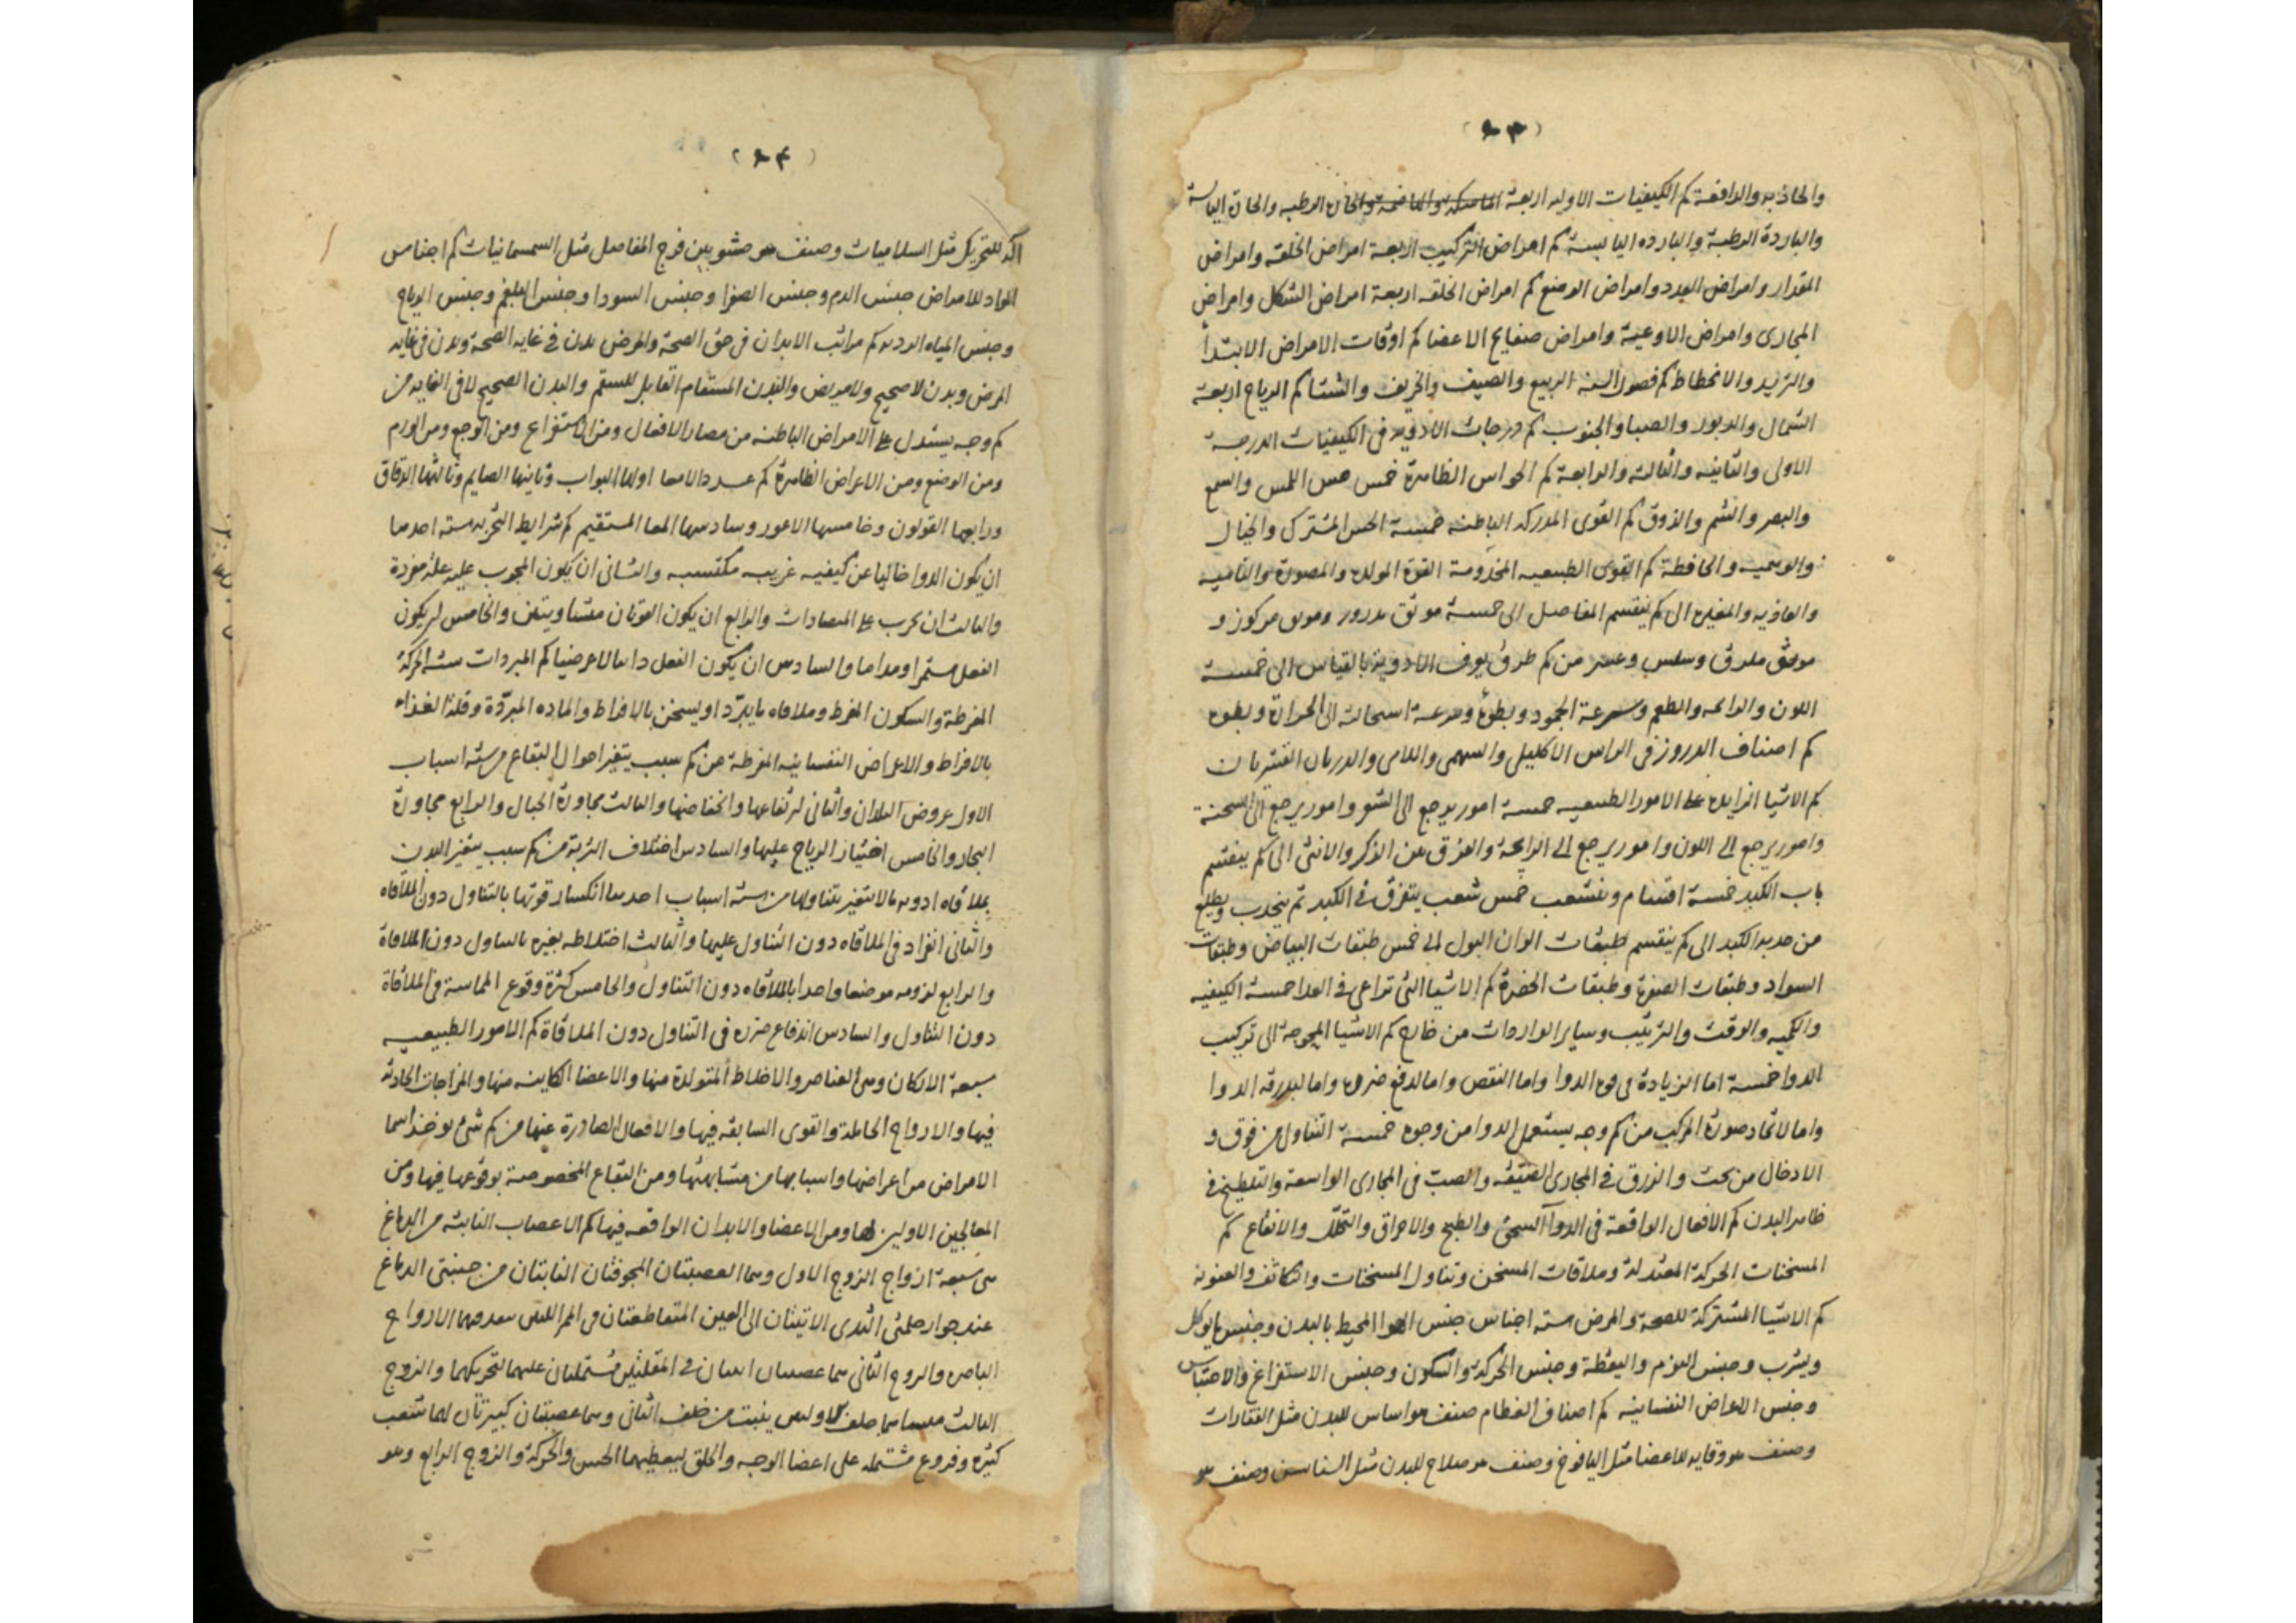 (٩٣)
والجاذبه والدافعة كم الكيفيات الاوليه اربعة الماسكة والهاضمة والحارة الرطبه والحارة اليابسة
والباردة الرطبة والبارده اليابسة كم امراض التركيب اربعة امراض الخلقه وامراض
المقدار وامراض العدد وامراض الوضع كم امراض الخلقه اربعة امراض الشكل وامراض
المجارى وامراض الاوعية وامراض صفايح الاعضا كم اوقات الامراض الابتدأ
والتزيد والانحطاط كم فصول السنه الربيع والصيف والخريف والشتا كم الرياح اربعة
الشمال والدبور والصبا والجنوب كم درجات الادويه فى الكيفيات الدرجة
الاولى والثانيه والثالثه والرابعة كم الحواس الظاهرة خمس حس اللمس والسمع
والبصر والشم والذوق كم القوى المدركه الباطنه خمسة الحس المشترك والخيال
والوهميه والحافظة كم القوى الطبيعيه المخدومة القوة المولده والمصورة والنامية
والغاذيه والمغيره الى كم ينقسم المفاصل الى خمسة موثق مدرور وموثق مركوز و
موثق ملزق وسلس وعسر من كم طرق يعرف الادوية بالقياس الى خمسة
اللون والرائحه والطعم وسرعة الجمود وبطؤه وسرعة استحالته الى الحرارة وبطوه
كم اصناف الدروز فى الراس الاكليلى والسهمى واللامى والدرزان القشريان
كم الاشيا الزايده على الامور الطبيعيه خمسة امور يرجع الى الشعر وامور يرجع الى السحنة
وامور يرجع الى اللون وامور يرجع الى الرائحة والفرق بين الذكر والانثى الى كم ينقسم
باب الكبد خمسة اقسام وينشعب خمس شعب يتفرق فى الكبد ثم ينجذب ويطلع
من حدبه الكبد الى كم ينقسم طبقات الوان البول الى خمس طبقات البياض وطبقات
السواد وطبقات الصفرة وطبقات الخضرة كم الاشيا التى تراعى فى الغدا خمسة الكيفيه
والكميه والوقت والترتيب وساير الواردات من خارج كم الاشيا المحوجة الى تركيب
الدوا خمسة اما الزيادة فى قوى الدوا واما النقص واما لدفع ضرره واما لبدرقة الدوا
واما لاتحاد صورة المركب من كم وجه يستعمل الدوا من وجوه خمسة التناول من فوق و
الادخال من تحت والزرق فى المجارى الضيقه والصب فى المجارى الواسعة والتلطيخ فى
ظاهر البدن كم الافعال الواقعة فى الدوآ السحق والطبخ والاحراق والتحلل والانقاع كم
المسخنات الحركة المعتدلة وملاقات المسخن وتناول المسخنات والتكاثف والعفونة
كم الاشيا المشتركة للصحة والمرض سته اجناس جنس الهوا المحيط بالبدن وجنس ما يوكل
ويشرب وجنس النوم واليقظة وجنس الحركة والسكون وجنس الاستفراغ والاحتباس
وجنس الاعراض النفسانيه كم اصناف العظام صنف هو اساس للبدن مثل الفقارات
وصنف هو وقايه للاعضا مثل اليافوخ وصنف هو صلاح للبدن مثل السناسن وصنف هو
(٩٤)
آلة للتحريك مثل السلاميات وصنف هو حشو بين فرج المفاصل مثل السمسمانيات كم اجناس
المواد للامراض جنس الدم وجنس الصفرا وجنس السودا وجنس البلغم وجنس الرياح
وجنس المياه الرديه كم مراتب الابدان فى حق الصحة والمرض بدن فى غايه الصحة وبدن فى غايه
المرض وبدن لا صحيح ولا مريض والبدن المستقام القابل للسقم والبدن الصحيح لا فى الغايه من
كم وجه يستدل على الامراض الباطنه من مضار الافعال ومن الاستفراغ ومن الوجع ومن الورم
ومن الوضع ومن الاعراض الظاهرة كم عدد الامعا اولها البواب وثانيها الصايم وثالثها الدقاق
ورابعها القولون وخامسها الاعور وسادسها المعا المستقيم كم شرايط التجربه ستة احدها
ان يكون الدوا خاليا عن كيفيه غريبه مكتسبه والثانى ان يكون المجرب عليه علة مفردة
والثالث ان يجرب على المتضادات والرابع ان يكون القوتان متساويتين والخامس ان يكون
الفعل مستمرا ومداما والسادس ان يكون الفعل ذاتيا لا عرضيا كم المبردات ستة الحركة
المفرطة والسكون المفرط وملاقاه ما يبرّد او يسخن بالافراط والماده المبرّدة وقلة الغذاء
بالافراط والاعراض النفسانيه المفرطة من كم سبب يتغير احوال البقاع من ستة اسباب
الاول عروض البلدان والثانى ارتفاعها وانخفاضها والثالث مجاورة الجبال والرابع مجاورة
البحار والخامس اختيار الرياح عليها والسادس اختلاف التربة من كم سبب يتغير البدن
بملاقاه ادويه ما لا يتغير بتناولها من ستة اسباب احدها انكسار قوتها بالتناول دون الملاقاه
والثانى انفراد فى الملاقاه دون التناول عليها والثالث اختلاطه بغيره بالتناول دون الملاقاة
والرابع لزومه موضعا واحدا بالملاقاه دون التناول والخامس كثرة وقوع المماسة فى الملاقاة
دون التناول والسادس اندفاع ضرره فى التناول دون الملاقاة كم الامور الطبيعيه
سبعة الاركان وهى العناصر والاخلاط المتولدة منها والاعضا الكاينه منها والمزاجات الحادثه
فيها والارواح الحاملة والقوى السابقه فيها والافعال الصادرة عنها من كم شئ يوخذ اسما
الامراض من اعراضها واسبابها من مشابهتها ومن البقاع المخصوصة بوقوعها فيها ومن
المعالجين الاولين لها ومن الاعضا والابدان الواقعه فيها كم الاعصاب النابته من الدماغ
هى سبعة ازواج الزوج الاول وهما العصبتان المجوفتان النابتان من جنبتى الدماغ
عند جوار حلمتى الثدى الاتيتان الى العين المتقاطعتان فى الممر اللتين ينفذ فيهما الارواح
الباصره والزوج الثانى هما عصبتان اتيتان فى المقلتين مشتملتان عليهما لتحريكهما والزوج
الثالث خلف الاولين ينبت من خلف الثانى وهما عصبتان كبيرتان لهما شعب
كثيره وفروع مشتمله على اعضا الوجه والحلق ليعطيهما الحس والحركة والزوج الرابع وهو